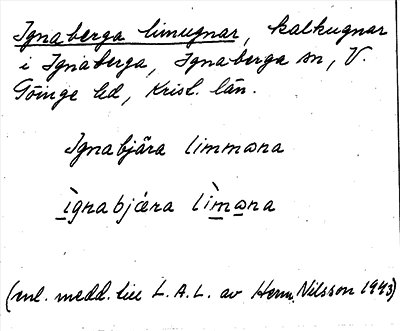 Ignaberga limugnar, kalkugnar
i Ignaberga, Ignaberga sn, V.
Göinge hd, Krist. län.
Ignabjära limməna
ìgnabjæra lìməna
(enl. medd. till L. A. L. av Herm. Nilsson 1943)